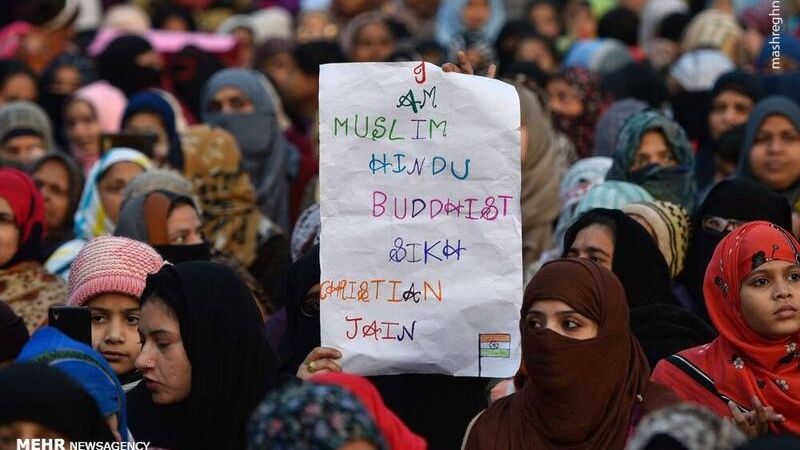 I
AM
MUSLIM
HINDU
BUDDHIST
SIKH
CHRISTIAN
JAIN
MEHR NEWSAGENCY